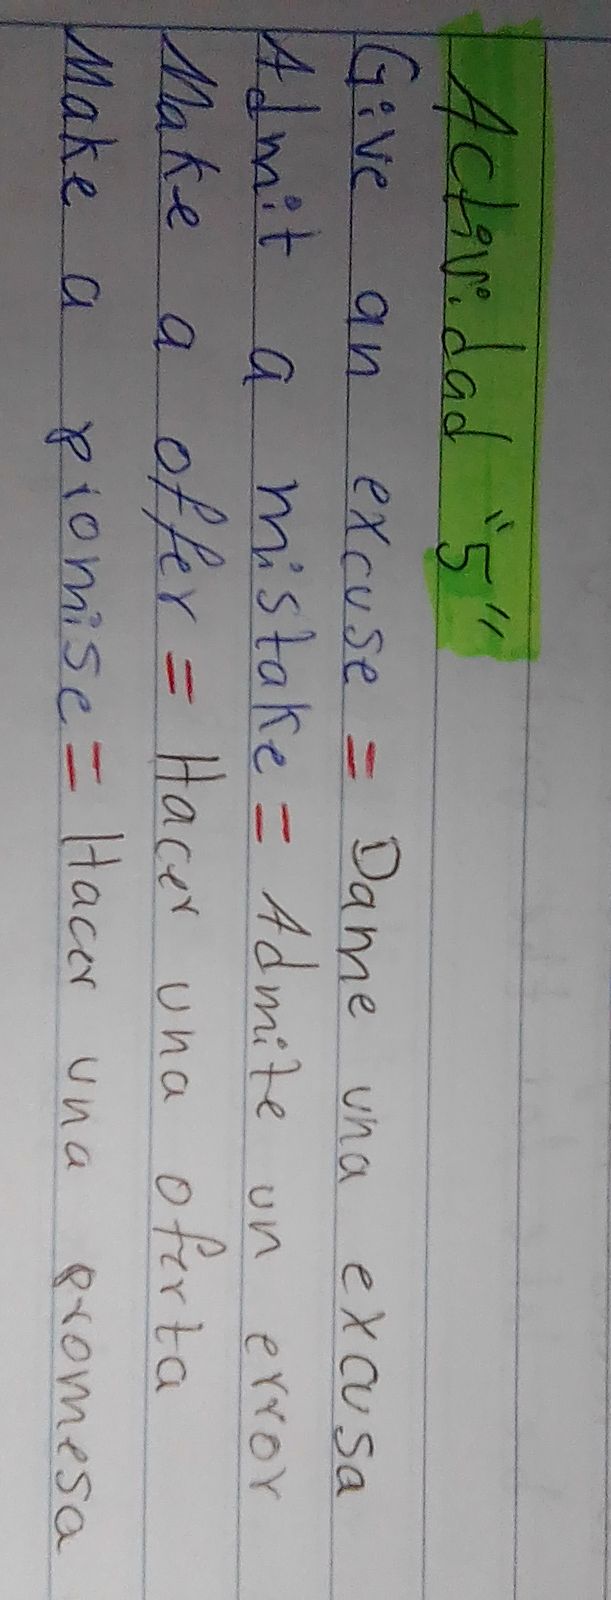 Actividad "5"
Give an excuse = Dame una excusa
Admit a mistake = Admite un error
Make a offer = Hacer una oferta
Make a promise = Hacer una promesa